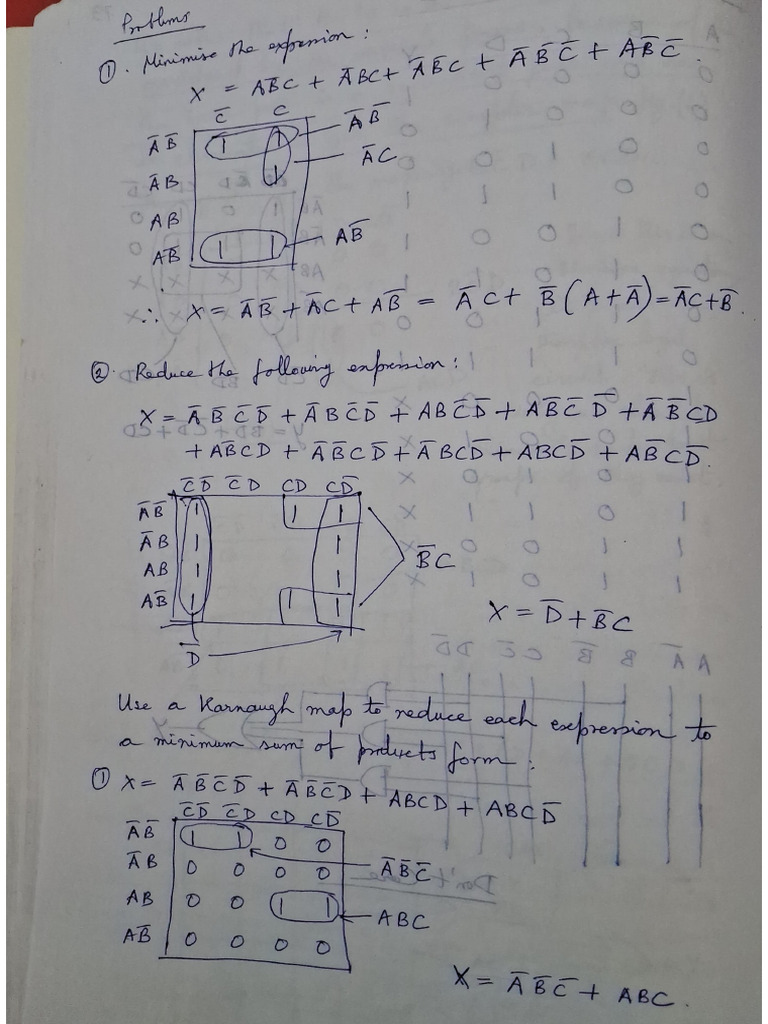 Problems
① Minimise the expression :
X = AB̅C + A̅BC + A̅B̅C + A̅B̅C̅ + AB̅C̅.
C̅ C
A̅B̅ 1 1 A̅B̅
A̅B 1 A̅C
AB
AB̅ 1 1 AB̅
∴ X = A̅B̅ + A̅C + AB̅ = A̅C + B̅(A + A̅) = A̅C + B̅.
② Reduce the following expression :
X = A̅B̅C̅D̅ + A̅BC̅D̅ + ABC̅D̅ + AB̅C̅D̅ + A̅B̅CD
+ AB̅CD + A̅B̅CD̅ + A̅BCD̅ + ABCD̅ + AB̅CD̅.
C̅D̅ C̅D CD CD̅
A̅B̅ 1 1 1
A̅B 1 1
AB 1 1
AB̅ 1 1 1
B̅C
D̅
X = D̅ + B̅C
Use a Karnaugh map to reduce each expression to
a minimum sum of products form :
① X = A̅B̅C̅D̅ + A̅B̅C̅D + ABCD + ABCD̅
C̅D̅ C̅D CD CD̅
A̅B̅ 1 1 0 0
A̅B 0 0 0 0 A̅B̅C̅
AB 0 0 1 1 ABC
AB̅ 0 0 0 0
X = A̅B̅C̅ + ABC.